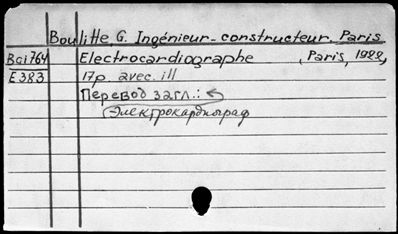 Boulitte G. Ingénieur-constructeur. Paris
Bci764 Electrocardiographe, Paris, 1928,
E383 17p. avec. ill
Перевод загл.:
Электрокардиограф